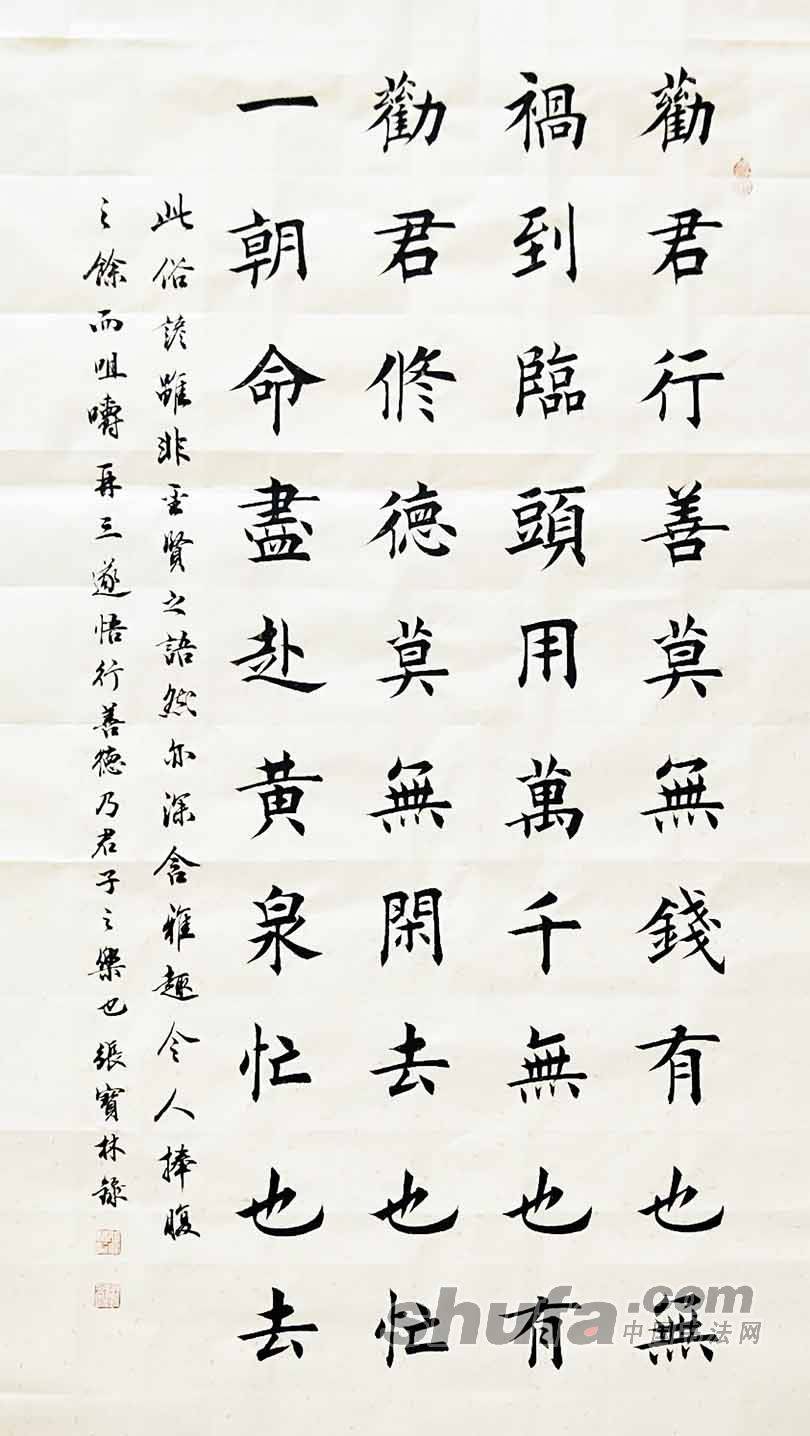 勸君行善莫無錢有也無
禍到臨頭用萬千無也有
勸君修德莫無閑去也忙
一朝命盡赴黃泉忙也去
此俗諺雖非聖賢之語然亦深含雅趣令人捧腹
之餘而咀嚼再三遂悟行善德乃君子之樂也張寶林錄
shufa.com
中国书法网